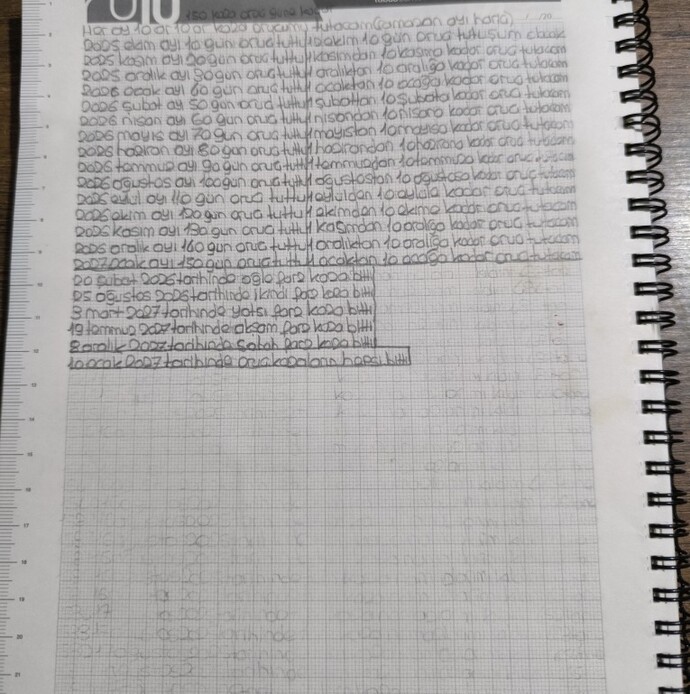 150 kaza oruc gunu
Her ay 10 ar 10 ar kaza orucumu tutacam (ramazan ayi haric)
2025 ekim ayi 10 gun oruc tuttu/ekim 10 gun oruc tutusum olacak
2025 kasim ayi 20 gun oruc tuttu/kasimdan 10 kasima kadar oruc tutacam
2025 aralik ayi 30 gun oruc tuttu/araliktan 10 araliga kadar oruc tutacam
2026 ocak ayi 40 gun oruc tuttu/ocaktan 10 ocaga kadar oruc tutacam
2026 subat ayi 50 gun oruc tuttu/subattan 10 subata kadar oruc tutacam
2026 nisan ayi 60 gun oruc tuttu/nisandan 10 nisana kadar oruc tutacam
2026 mayis ayi 70 gun oruc tuttu/mayistan 10 mayisa kadar oruc tutacam
2026 haziran ayi 80 gun oruc tuttu/hazirandan 10 hazirana kadar oruc tutacam
2026 temmuz ayi 90 gun oruc tuttu/temmuzdan 10 temmuza kadar oruc tutacam
2026 ogustos ayi 100 gun oruc tuttu/ogustostan 10 ogustosa kadar oruc tutacam
2026 eylul ayi 110 gun oruc tuttu/eylulden 10 eylula kadar oruc tutacam
2026 ekim ayi 120 gun oruc tuttu/ekimden 10 ekime kadar oruc tutacam
2026 kasim ayi 130 gun oruc tuttu/kasimdan 10 araliga kadar oruc tutacam
2026 aralik ayi 140 gun oruc tuttu/araliktan 10 araliga kadar oruc tutacam
2027 ocak ayi 150 gun oruc tuttu/ocaktan 10 ocaga kadar oruc tutacam
20 subat 2026 tarihinde ogle farz kaza bitti
25 ogustos 2026 tarihinde ikindi farz kaza bitti
3 mart 2027 tarihinde yatsi farz kaza bitti
19 temmuz 2027 tarihinde aksam farz kaza bitti
8 aralik 2027 tarihinde sabah farz kaza bitti
10 ocak 2027 tarihinde oruc kazalarin hepsi bitti